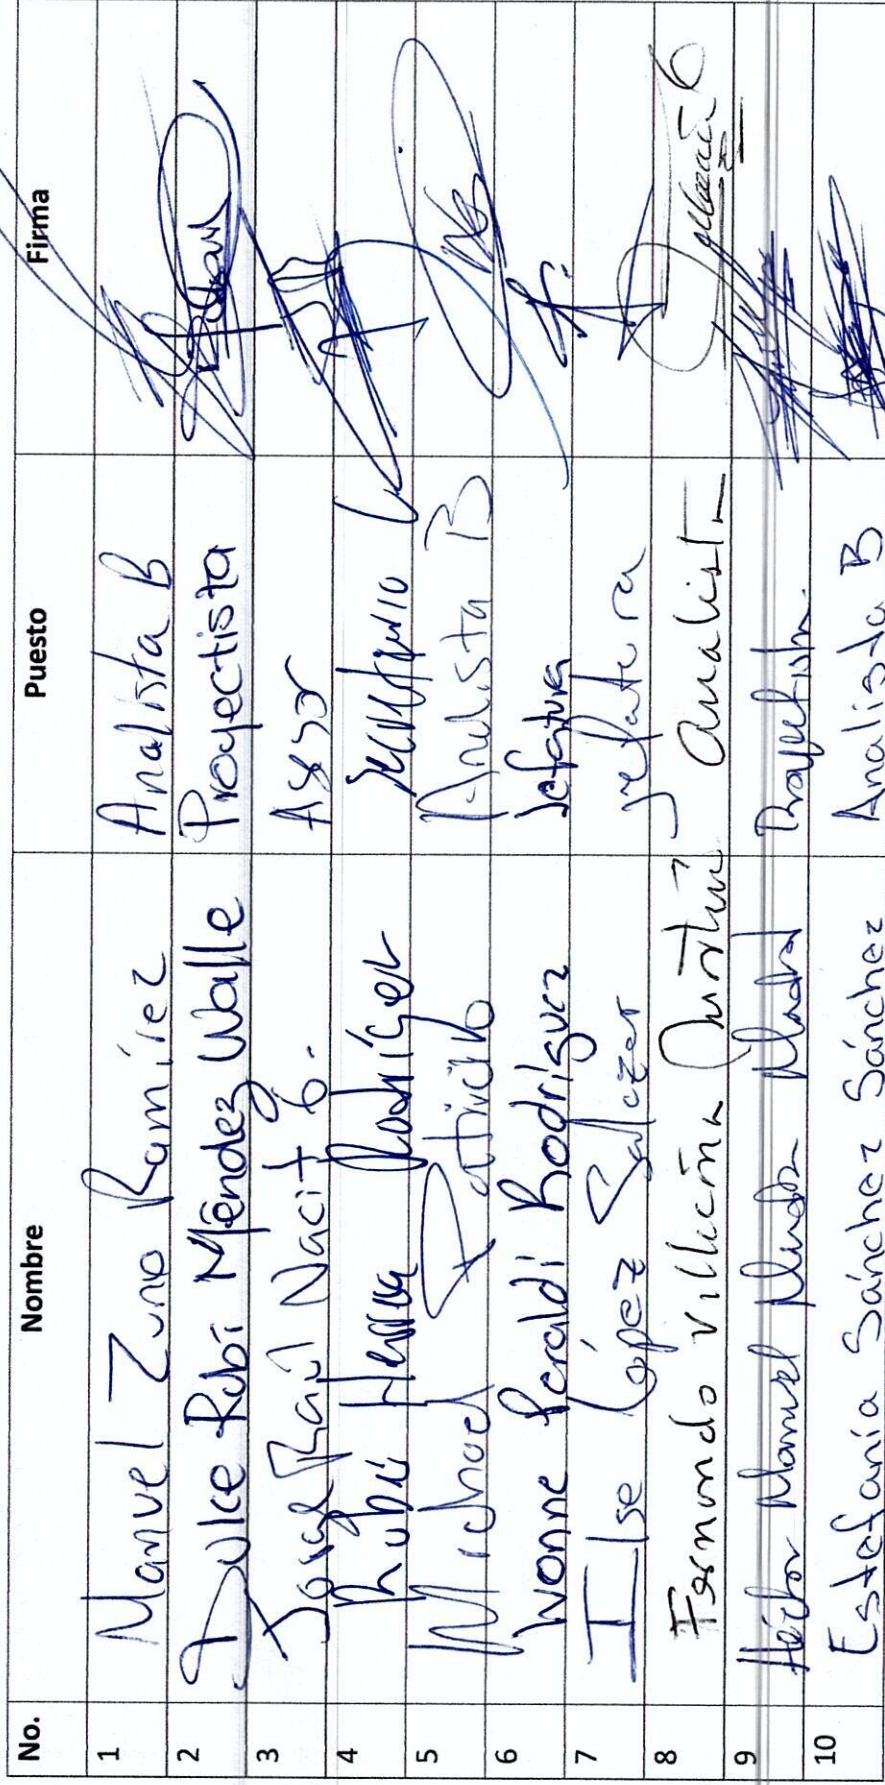 No. Nombre Puesto Firma
1 Manuel Zuno Ramírez Analista B
2 Dulce Rubí Méndez Walle Proyectista
3 Jorge Raúl Nacit G.
4 Rubí Rodríguez
5 Michael Patricio Analista B
6 Ivonne Peraldi Rodríguez Jefatura
7 Ilse López Salazar jefatura
8 Fernando Villicaña Analista
9 Héctor Manuel Proyectista
10 Estefanía Sánchez Sánchez Analista B